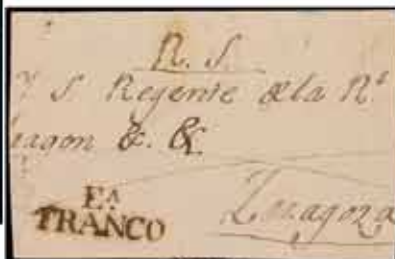 R. S.
Y S Regente de la R.ˢ
ragon &. &.
EA
FRANCO
Zaragoza